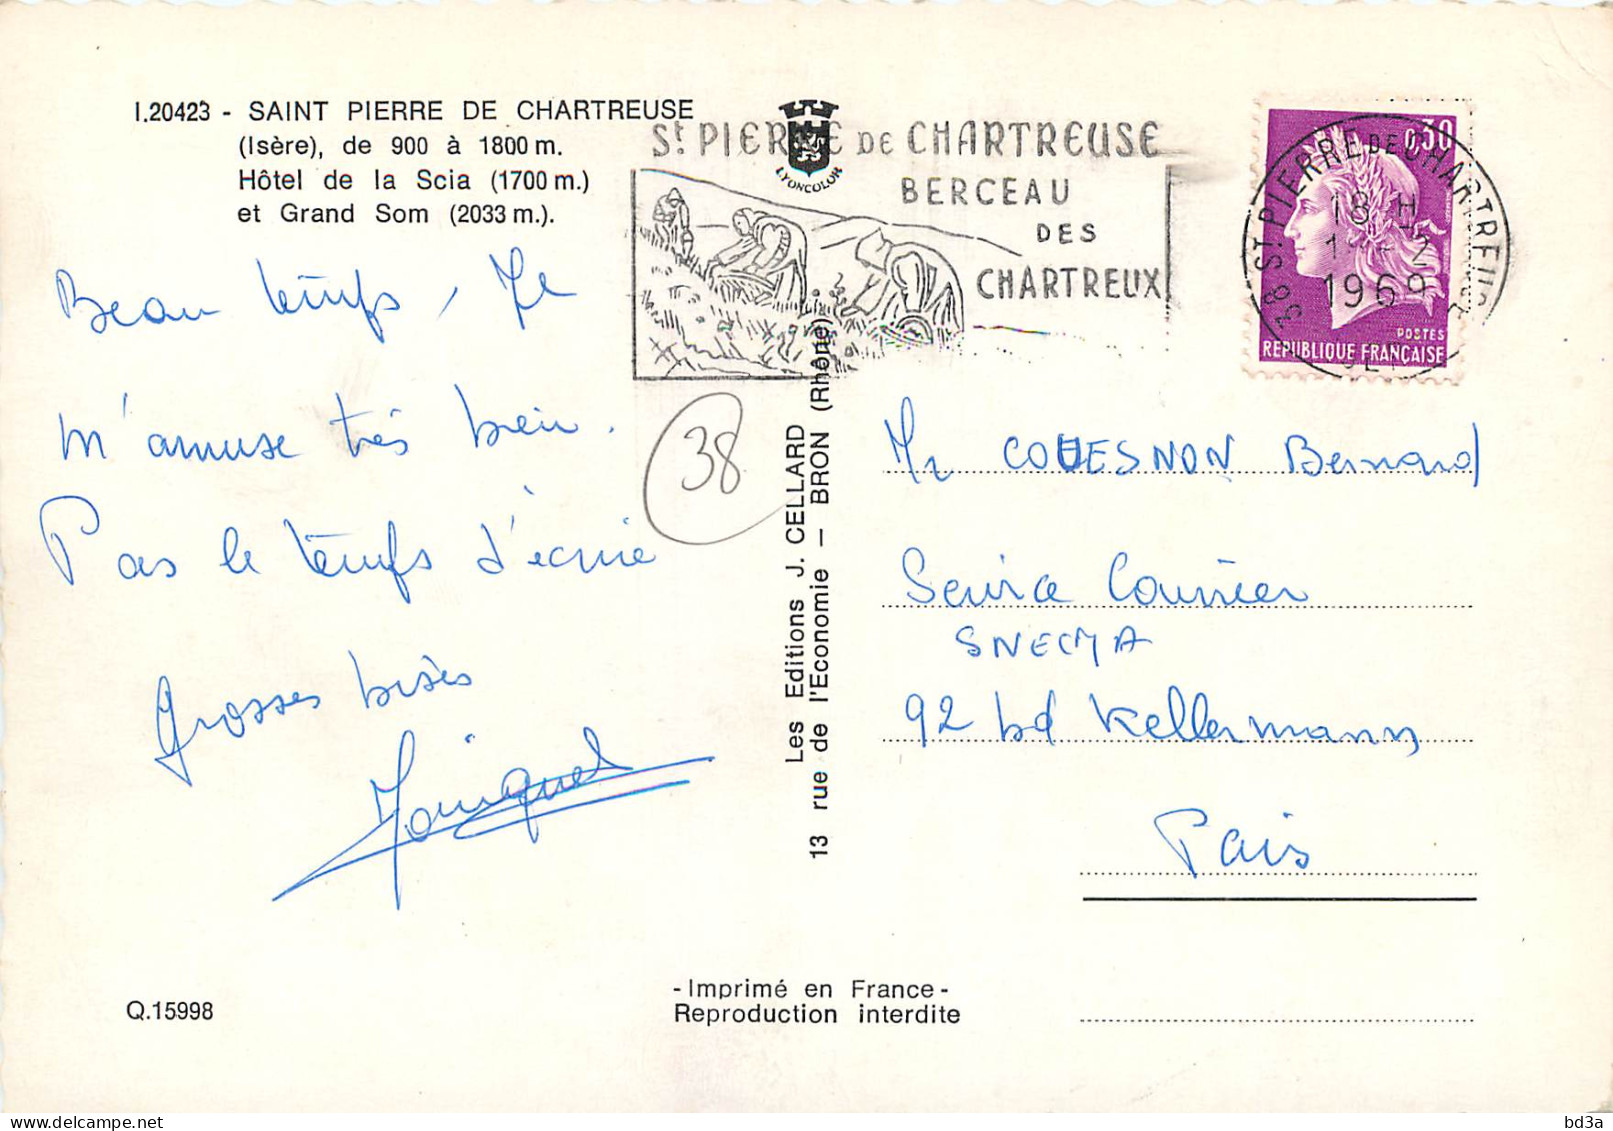 I.20423 - SAINT PIERRE DE CHARTREUSE
(Isère), de 900 à 1800 m.
Hôtel de la Scia (1700 m.)
et Grand Som (2033 m.).
Beau temps, Je
m'amuse très bien.
Pas le temps d'écrire
Grosses bises
38
Q.15998
LYONCOLOR
St PIERRE DE CHARTREUSE
BERCEAU
DES
CHARTREUX
Les Editions J. CELLARD
13 rue de l'Economie — BRON (Rhône)
- Imprimé en France -
Reproduction interdite
0,30
POSTES
REPUBLIQUE FRANÇAISE
38 ST PIERRE DE CHARTREUSE
18 H
1969
Mr COUESNON Bernard
Service Courrier
SNECMA
92 bd Kellermann
Paris
bd3a